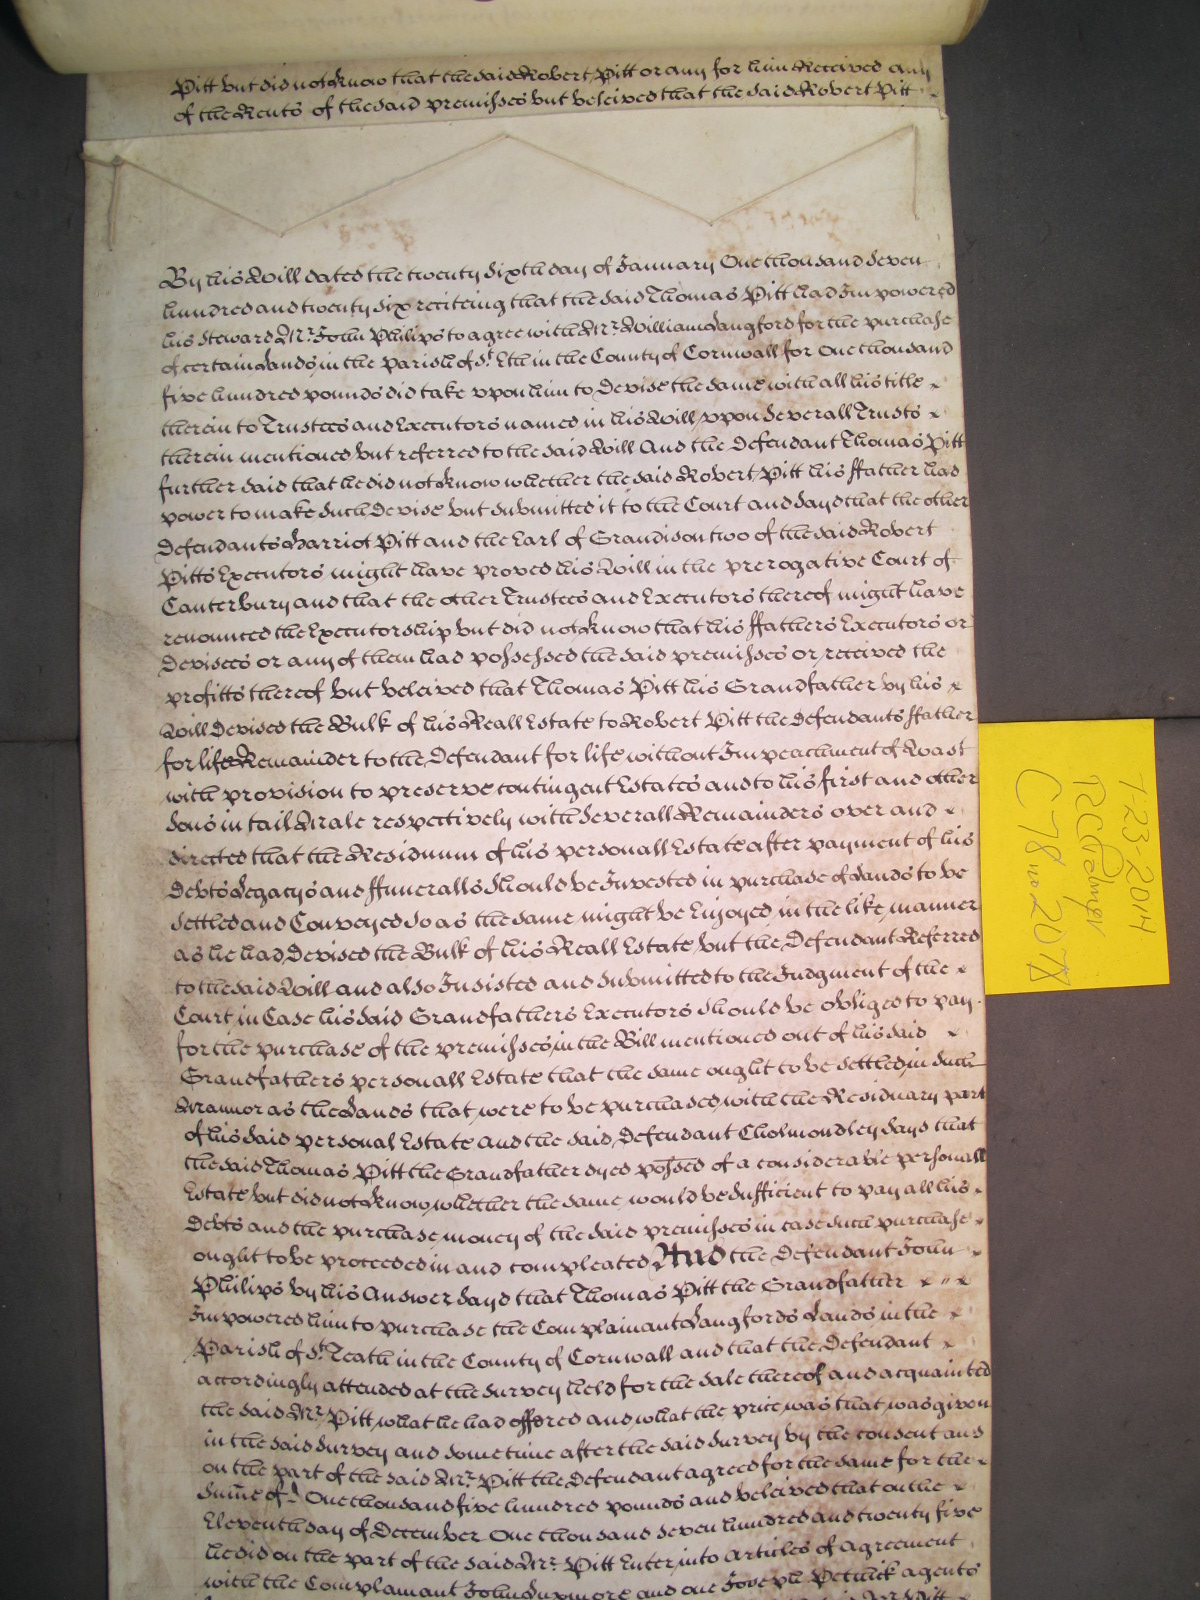 Pitt but did not know that the said Robert Pitt or any for him Received any
of the Rents of the said premisses but beleived that the said Robert Pitt
By his Will dated the twenty sixth day of January One thousand seven
hundred and twenty six reciteing that the said Thomas Pitt had Impowered
his Steward Mr. John Philips to agree with Mr. William Langford for the purchase
of certain Lands in the parish of St. Eth in the County of Cornwall for One thousand
five hundred pounds did take upon him to Devise the same with all his title
therein to Trustees and Executors named in his Will upon severall Trusts
therein mentioned but referred to the said Will And the Defendant Thomas Pitt
further said that he did not know whether the said Robert Pitt his ffather had
power to make such Devise but submitted it to the Court and says that the other
Defendants Harriot Pitt and the Earl of Grandison two of the said Robert
Pitts Executors might have proved his Will in the prerogative Court of
Canterbury and that the other Trustees and Executors thereof might have
renounced the Executorship but did not know that his ffathers Executors or
Devisees or any of them had possessed the said premisses or received the
profitts thereof but beleived that Thomas Pitt his Grandfather by his
Will Devised the Bulk of his Reall Estate to Robert Pitt the Defendants ffather
for life Remainder to the Defendant for life without Impeachment of Wast
with provision to preserve contingent Estates and to his first and other
sons in tail Male respectively with severall Remainders over and
directed that the Residuum of his personall Estate after payment of his
Debts Legacys and ffuneralls should be Invested in purchase of Lands to be
settled and Conveyed so as the same might be Enjoyed in the like manner
as he had Devised the Bulk of his Reall Estate but the Defendant Referred
to the said Will and also Insisted and submitted to the Judgment of the
Court in Case his said Grandfathers Executors should be obliged to pay
for the purchase of the premisses in the Bill mentioned out of his said
Grandfathers personall Estate that the same ought to be settled in such
Mannor as the Lands that were to be purchased with the Residuary part
of his said personal Estate and the said Defendant Cholmondley says that
the said Thomas Pitt the Grandfather dyed possed of a considerable personall
Estate but did not know whether the same would be sufficient to pay all his
Debts and the purchase money of the said premisses in case such purchase
ought to be proceeded in and compleated And the Defendant John
Philips by his Answer says that Thomas Pitt the Grandfather
Impowered him to purchase the Complainant Langfords Lands in the
Parish of St. Teath in the County of Cornwall and that the Defendant
accordingly attended at the survey held for the sale thereof and acquainted
the said Mr. Pitt what he had offered and what the price was that was given
in the said survey and some time after the said survey by the consent and
on the part of the said Mr. Pitt the Defendant agreed for the same for the
sume of One thousand five hundred pounds and beleived that on the
Eleventh day of December One thousand seven hundred and twenty five
he did on the part of the said Mr. Pitt Enter into Articles of Agreement
with the Complainant John and one Joseph agents
Mr. Pitt
1-23-2014
C78 no 2078